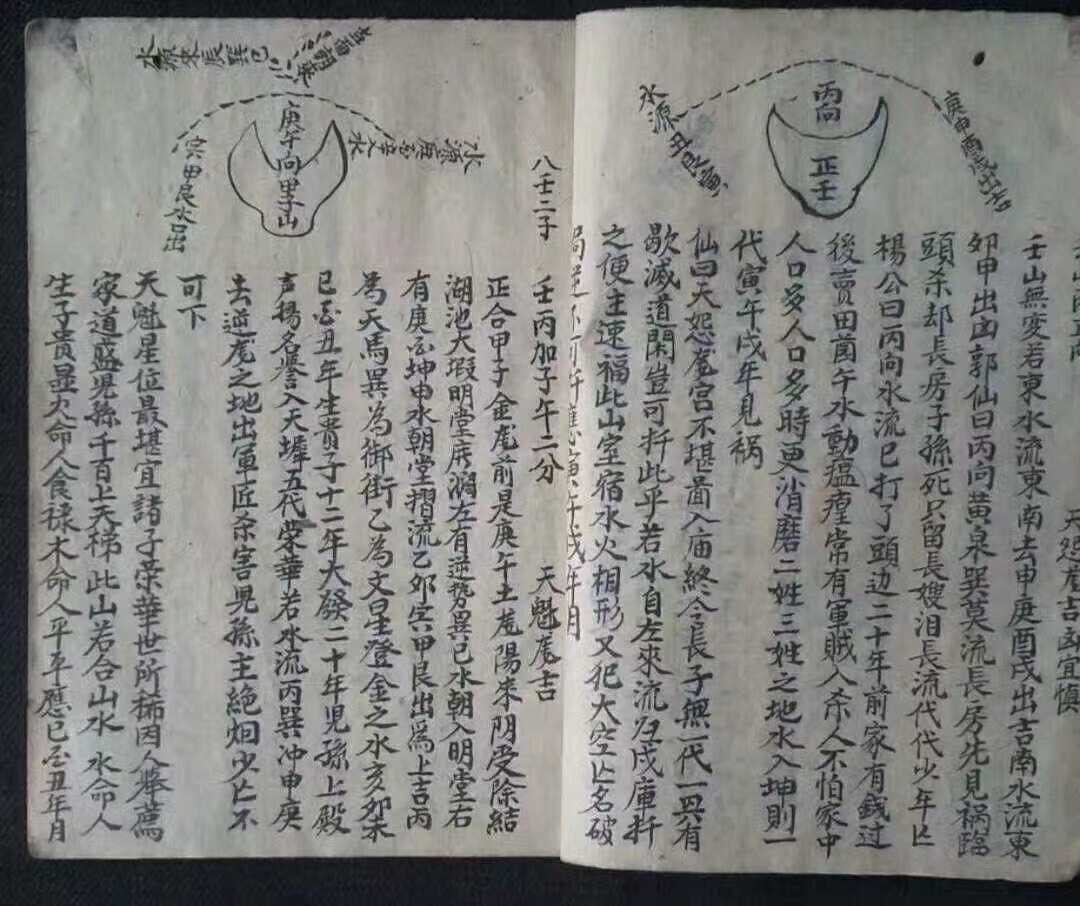 水源丑艮寅
丙向
正壬
庚申酉戌出吉
壬山無変若東水流東南去申庚酉戌出吉南水流東
卯甲出凶郭仙曰丙向黄泉巽莫流長房先見禍臨
頭杀却長房子孫死只留長嫂泪長流代代少年亡
楊公曰丙向水流巳打了頭边二十年前家有錢过
後賣田畄午水動瘟瘽常有軍賊入杀人不怕家中
人口多人口多時更消磨二姓三姓之地水入坤則一
代寅午戌年見禍
仙曰天怨龙宫不堪啚入庙終令長子無一代一㒷有
歇滅道閑豈可扦此乎若水自左來流归戌庫扦
之便主速福此山室宿水火相形又犯大空亡名破
天怨龙吉凶宜慎
八壬二子
壬丙加子午二分
天魁龙吉
水源來辰巽巳
庚午向里子山
宾甲艮水口出
正合甲子金龙前是庚午土龙陽來阴受除結
湖池大瑕明堂庥濶左有逆势巽已水朝入明堂右
有庚酉坤申水朝堂摺流乙卯宾甲艮出為上吉丙
為天馬巽為御街乙為文星登金之水亥卯未
已酉丑年生貴子十二年大發二十年児孫上殿
声揚名譽入天墀五代荣華若水流丙巽冲申庚
去逆龙之地出軍匠杂害児孫主絶烟少亡不
可下
天魁星位最堪宜諸子荣華世所稀因人举薦
家道盛児孫千百上天梯此山若合山水 水命人
生子貴显火命人食禄木命人平平應已酉丑年月